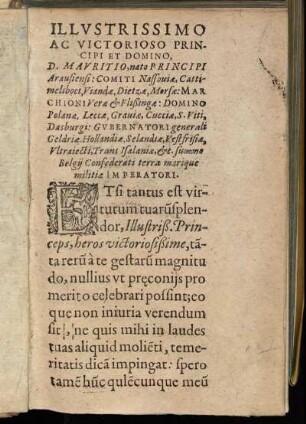 ILLVSTRISSIMO
AC VICTORIOSO PRIN-
CIPI ET DOMINO,
D. MAVRITIO, nato PRINCIPI
Arausiensi: COMITI Nassouiæ, Catti-
meliboci, Viandæ, Dietzæ, Morsæ: MAR-
CHIONI Veræ & Vlißingæ: DOMINO
Polanæ, Leccæ, Grauiæ, Cuciæ, S. Viti,
Dasburgi: GVBERNATORI generali
Geldriæ, Hollandiæ, Selandiæ, VVestfrisiæ,
Vltraiecti, Trans Isalaniæ, &c. summo
Belgij Confœderati terra marique
militiæ IMPERATORI.
ETsi tantus est vir-
tutum tuarũ splen-
dor, Illustriß. Prin-
ceps, heros victoriosißime, tã-
ta rerũ à te gestarũ magnitu
do, nullius vt præconijs pro
merito celebrari possint; eo
que non iniuria verendum
sit, ne quis mihi in laudes
tuas aliquid moliẽti, teme-
ritatis dicã impingat: spero
tamẽ hũc qulẽcunque meũ